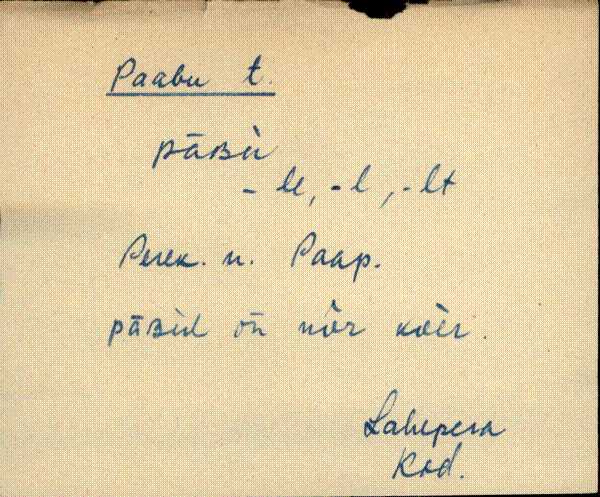 Paabu t.
pāʙù
- le, - l, - lt
Perek. n. Paap.
pāʙùl ōn nôr koèr.
Lahepera
Kod.